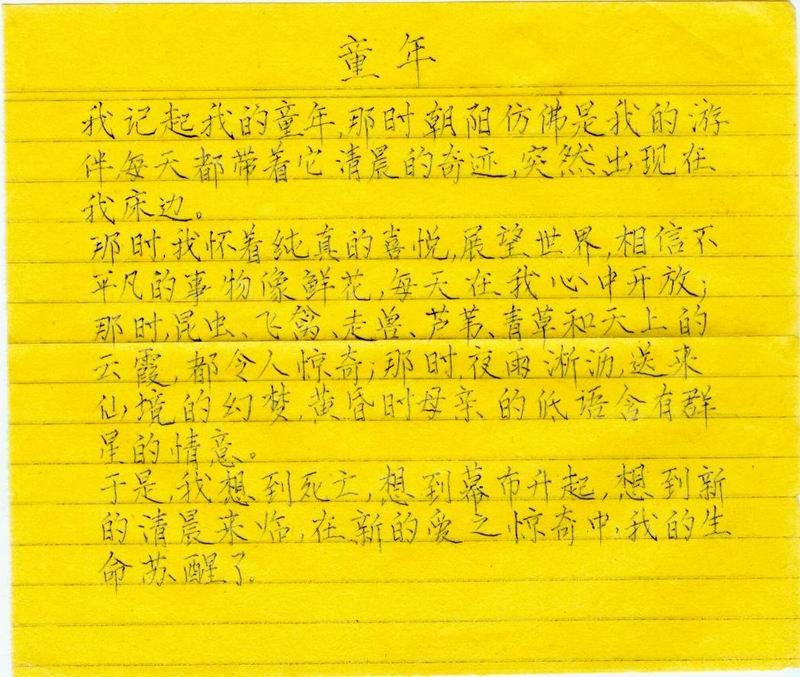 童年
我记起我的童年,那时朝阳仿佛是我的游
伴,每天都带着它清晨的奇迹,突然出现在
我床边。
那时,我怀着纯真的喜悦,展望世界,相信不
平凡的事物像鲜花,每天在我心中开放;
那时,昆虫、飞禽、走兽、芦苇、青草和天上的
云霞,都令人惊奇;那时夜雨淅沥,送来
仙境的幻梦,黄昏时母亲的低语含有群
星的情意。
于是,我想到死亡,想到幕布升起,想到新
的清晨来临,在新的爱之惊奇中,我的生
命苏醒了。